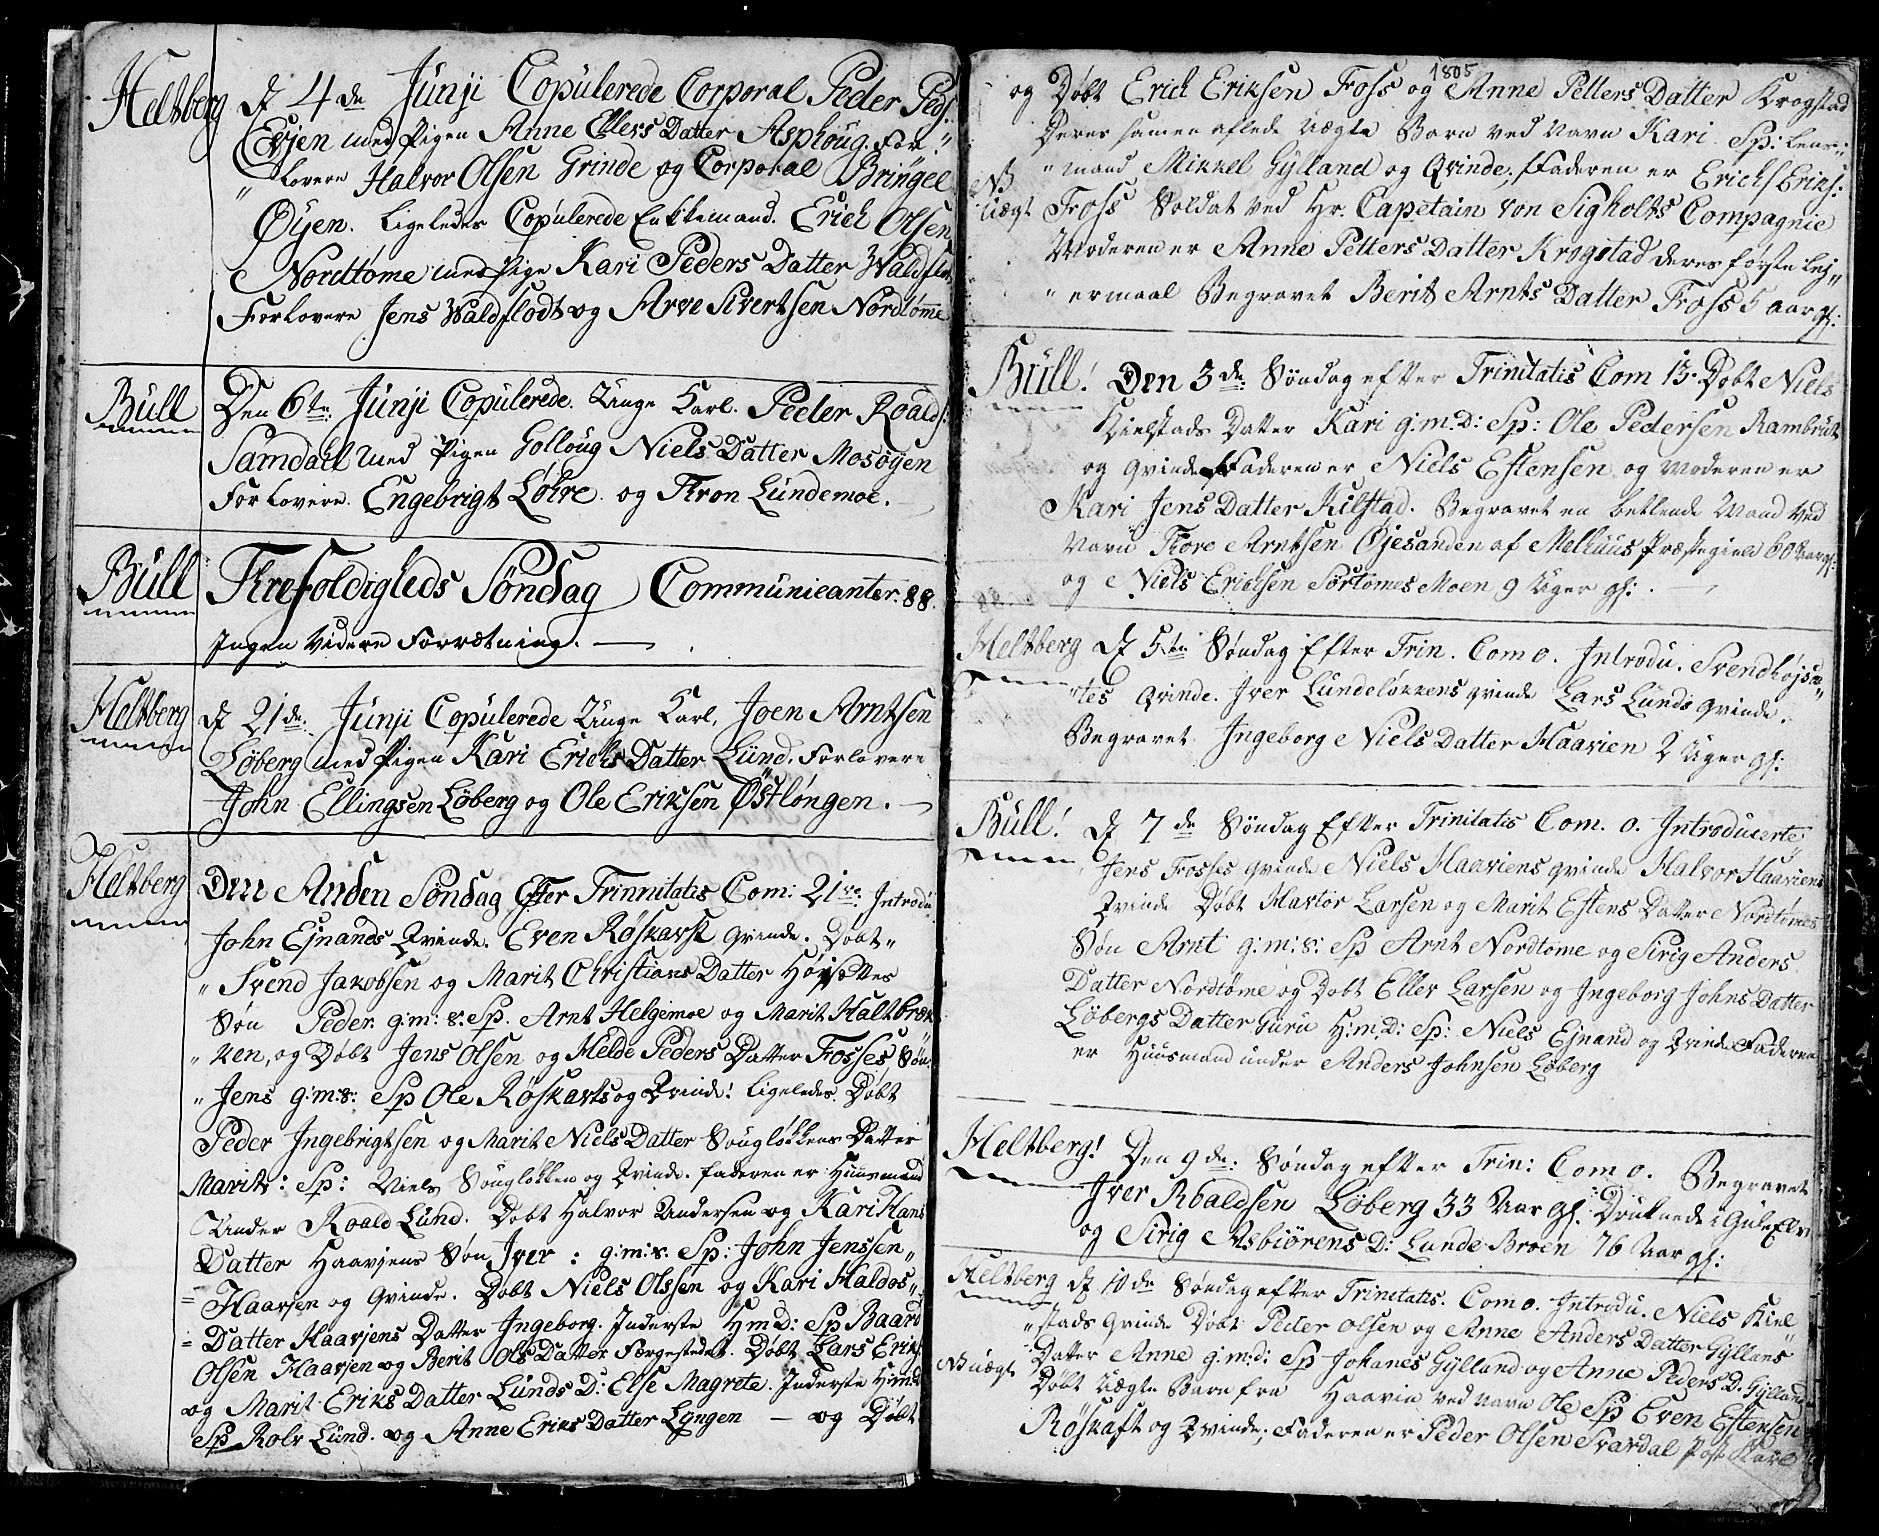 Heltberg
d 4de Junji Copulerede Corporal Peder Peds:
Evjen med Pigen Anne Ellers Datter Asphoug. For=
lovere Halvor Olsen Grinde og Corporal Bringel
Øyen. Ligeledes Copulerede Enkkemand. Erich Olsen
Nordtøme med Pige Kari Peders Datter Waldflot
Forlovere Jens Waldflodt og Arve Sivertsen Nordtøme
Büll
Den 6te Junji Copulerede. Unge Karl. Peder Roalds:
Samdahl med Pigen Golloug Niels Datter Mosøyen
Forlovere. Engebrigt Løkre. og Thron Lundemoe.
Büll
Threfoldigheds Søndag Communicanter: 88.
Ingen Videre Forretning.
Heltberg
d 21de: Junji Copulerede Unge Karl, Joen Arntsen
Løberg med Pigen Kari Erichs Datter Lund. Forlovere
John Ellingsen Løberg og Ole Eriksen Østløngen.
Heltberg
Den Anden Søndag Efter Trinnitatis Com: 21ve: Introdu
John Ejnands Qvinde. Even Røskavst Qvinde. Døbt
Svend Jakobsen og Marit Christians Datter Højsettes
Søn Peder. g:m: s: Sp. Arnt Helgemoe og Marit Haltbræk
ken, og Døbt Jens Olsen og Helde Peders Datter Fosses Søn.
Jens g:m:s: Sp Ole Røskavts og Qvinde! ligeledes Døbt
Peder Ingebrigtsen og Marit Niels Datter Sougløkkens Datter
Marit: Sp: Niels Sougløkken og Qvinde. faderen er Huusmand
Under Roald Lund. Døbt Halvor Andersen og Kari Hans
Datter Haavjens Søn Iver: g:m:s. Sp: John Jenssen
Haavsen og Qvinde. Døbt Niels Olssen og Kari Haldos
Datter Haavjens Datter Ingeborg. Inderste H:m:D: Sp Baard
Olsen Haavsen og Berit Ols Datter Forgestedet. Døbt Lars Eriks
og Marit Eriks Datter Lunds D: Else Magrete. Inderste H:m:d
Sp Rolv Lund. og Anne Eriks Datter Lyngen — og Døbt
1805
og Døbt Erick Eriksen Foss og Anne Petters Datter Krogstad
Deres samen aflede Uægte Barn ved Navn Kari Sp: Lens=
NB
mand Mikkel Gylland og Qvinde; Faderen er Erichs Eriks:
Uægt
Foss Soldat ved Hr. Capetain von Sigholts Compagnie
Moderen er Anne Petters Datter Krogstad deres første Lej
ermaal Begravet Berit Arnts Datter Foss 5 aar gl:
Büll!
Den 3de: Søndag efter Trinitatis Com 13. Døbt Niels
Kielstads Datter Kari g:m:D: Sp: Ole Pedersen Rambrut
og Qvinde Faderen er Niels Estensen og Moderen er
Kari Jens Datter Kilstad. Begravet en betlende Mand Ved
Navn Thore Arntsen Øjesanden af Melhuus Præstegield 60 Aar gl:
og Niels Erichsen Sørtømes Moen 9 Uger gl:
Heltberg
d 5te Søndag Efter Trin. Com 0. Introdu. Svend Højsæ
tes Qvinde. Iver Lundeløkkens Qvinde Lars Lunds Qvinde.
Begravet Ingeborg Niels Datter Haavien 2 Uger gl:
Büll!
d 7de Søndag Efter Trinitatis Com. 0. Introducerte
Jens Fosses Qvinde Niels Haaviens Qvinde Halvor Haaviens
Qvinde Døbt Havtor Larsen og Marit Estens Datter Nordtømes
Søn Arnt g:m:s: Sp Arnt Nordtøme og Sirig Anders
Datter Nordtøme og Døbt Eller Larsen og Ingeborg Johns Datter
Løbergs Datter Guru H:m:D: Sp: Niels Ejnand og Qvinde Faderen
er Huusmand under Anders Johnsen Løberg
Heltberg!
Den 9de: Søndag efter Trin: Com 0. Begravet
Iver Roaldsen Løberg 33 Aar gl. Druknede i Gulelv
og Sirig Asbiørens D: Lunde Broen 76 Aar gl:
Heltberg
d 10de Søndag efter Trinitatis. Com 0. Introdu. Niels Kiel
stads Qvinde Døbt Peder Olsen og Anne Anders Datter Gyllans
Datter Anne g:m:d: Sp Johanes Gylland og Anne Peders D. Gylland
NB uægt
Døbt Uægte Barn fra Haavin ved Navn Ole Sp Even Estensen
Røskaft og Qvinde; Faderen er Peder Olsen Svardal Post Karl